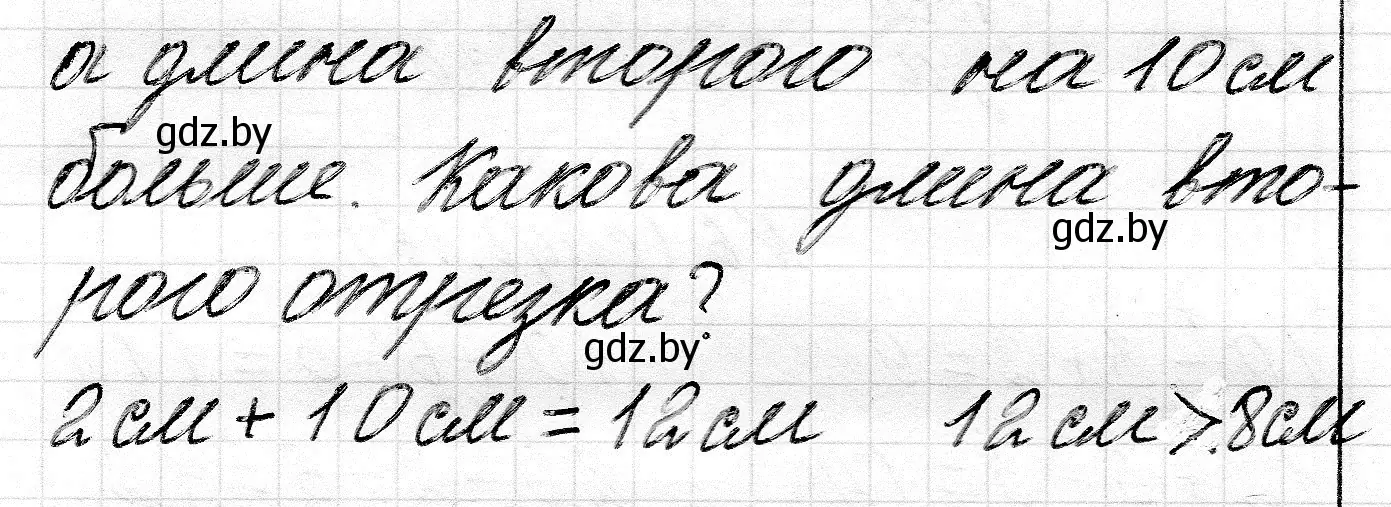 а длина второго на 10 см
gdz.by
больше. Какова длина вто-
gdz.by
рого отрезка?
gdz.by
2 см + 10 см = 12 см 12 см > 8 см